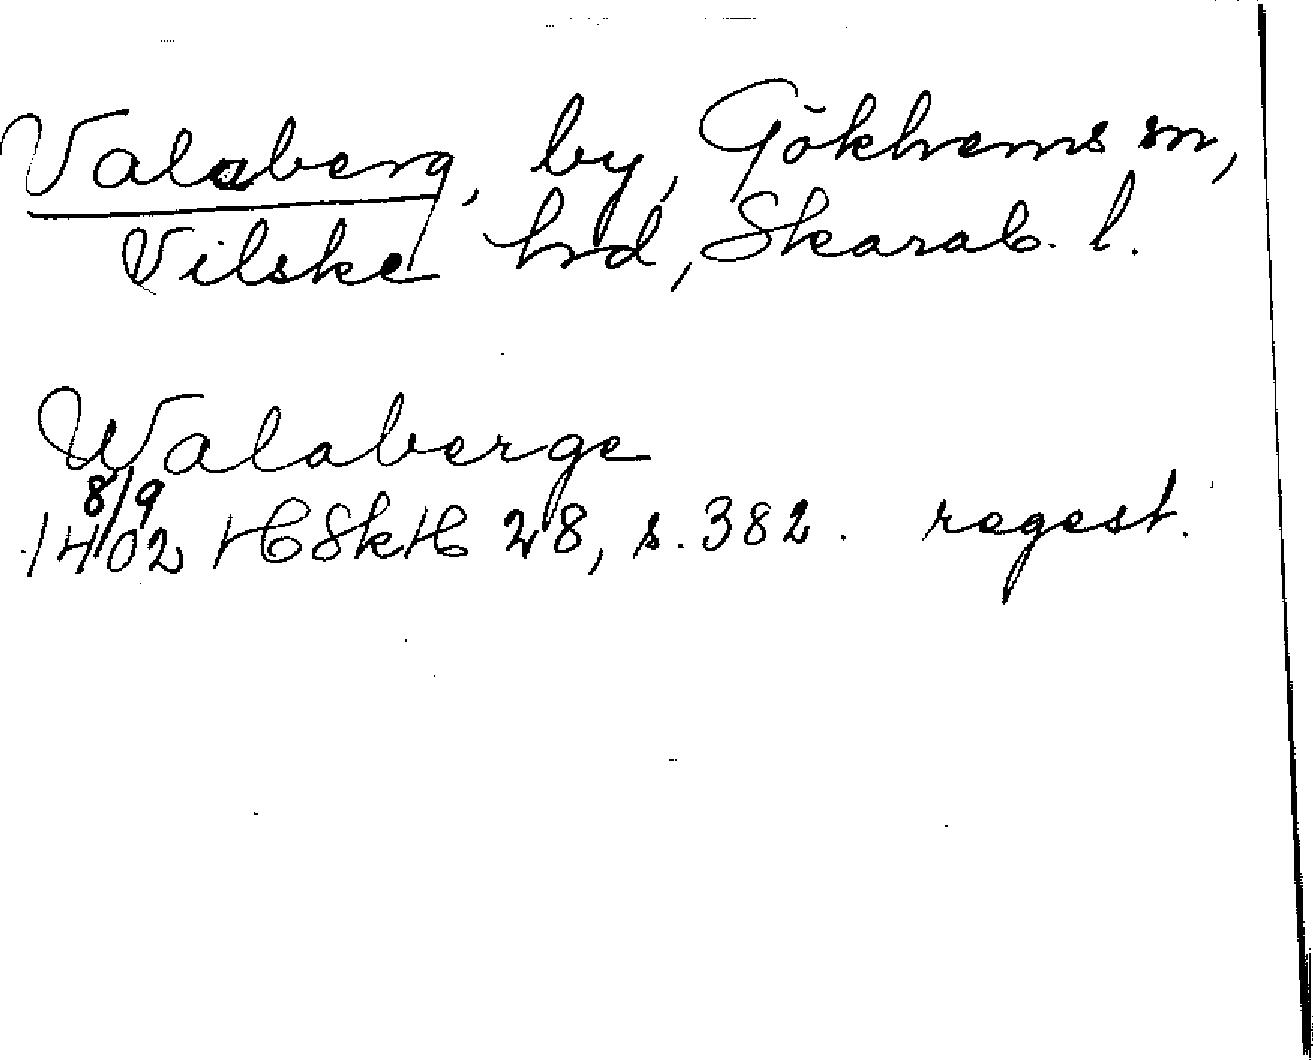 Valaberg, by, Gökhems sn,
Vilske hd, Skarab. l.
Walaberge
8/9
1402 HSkH 28, s. 382. regest.